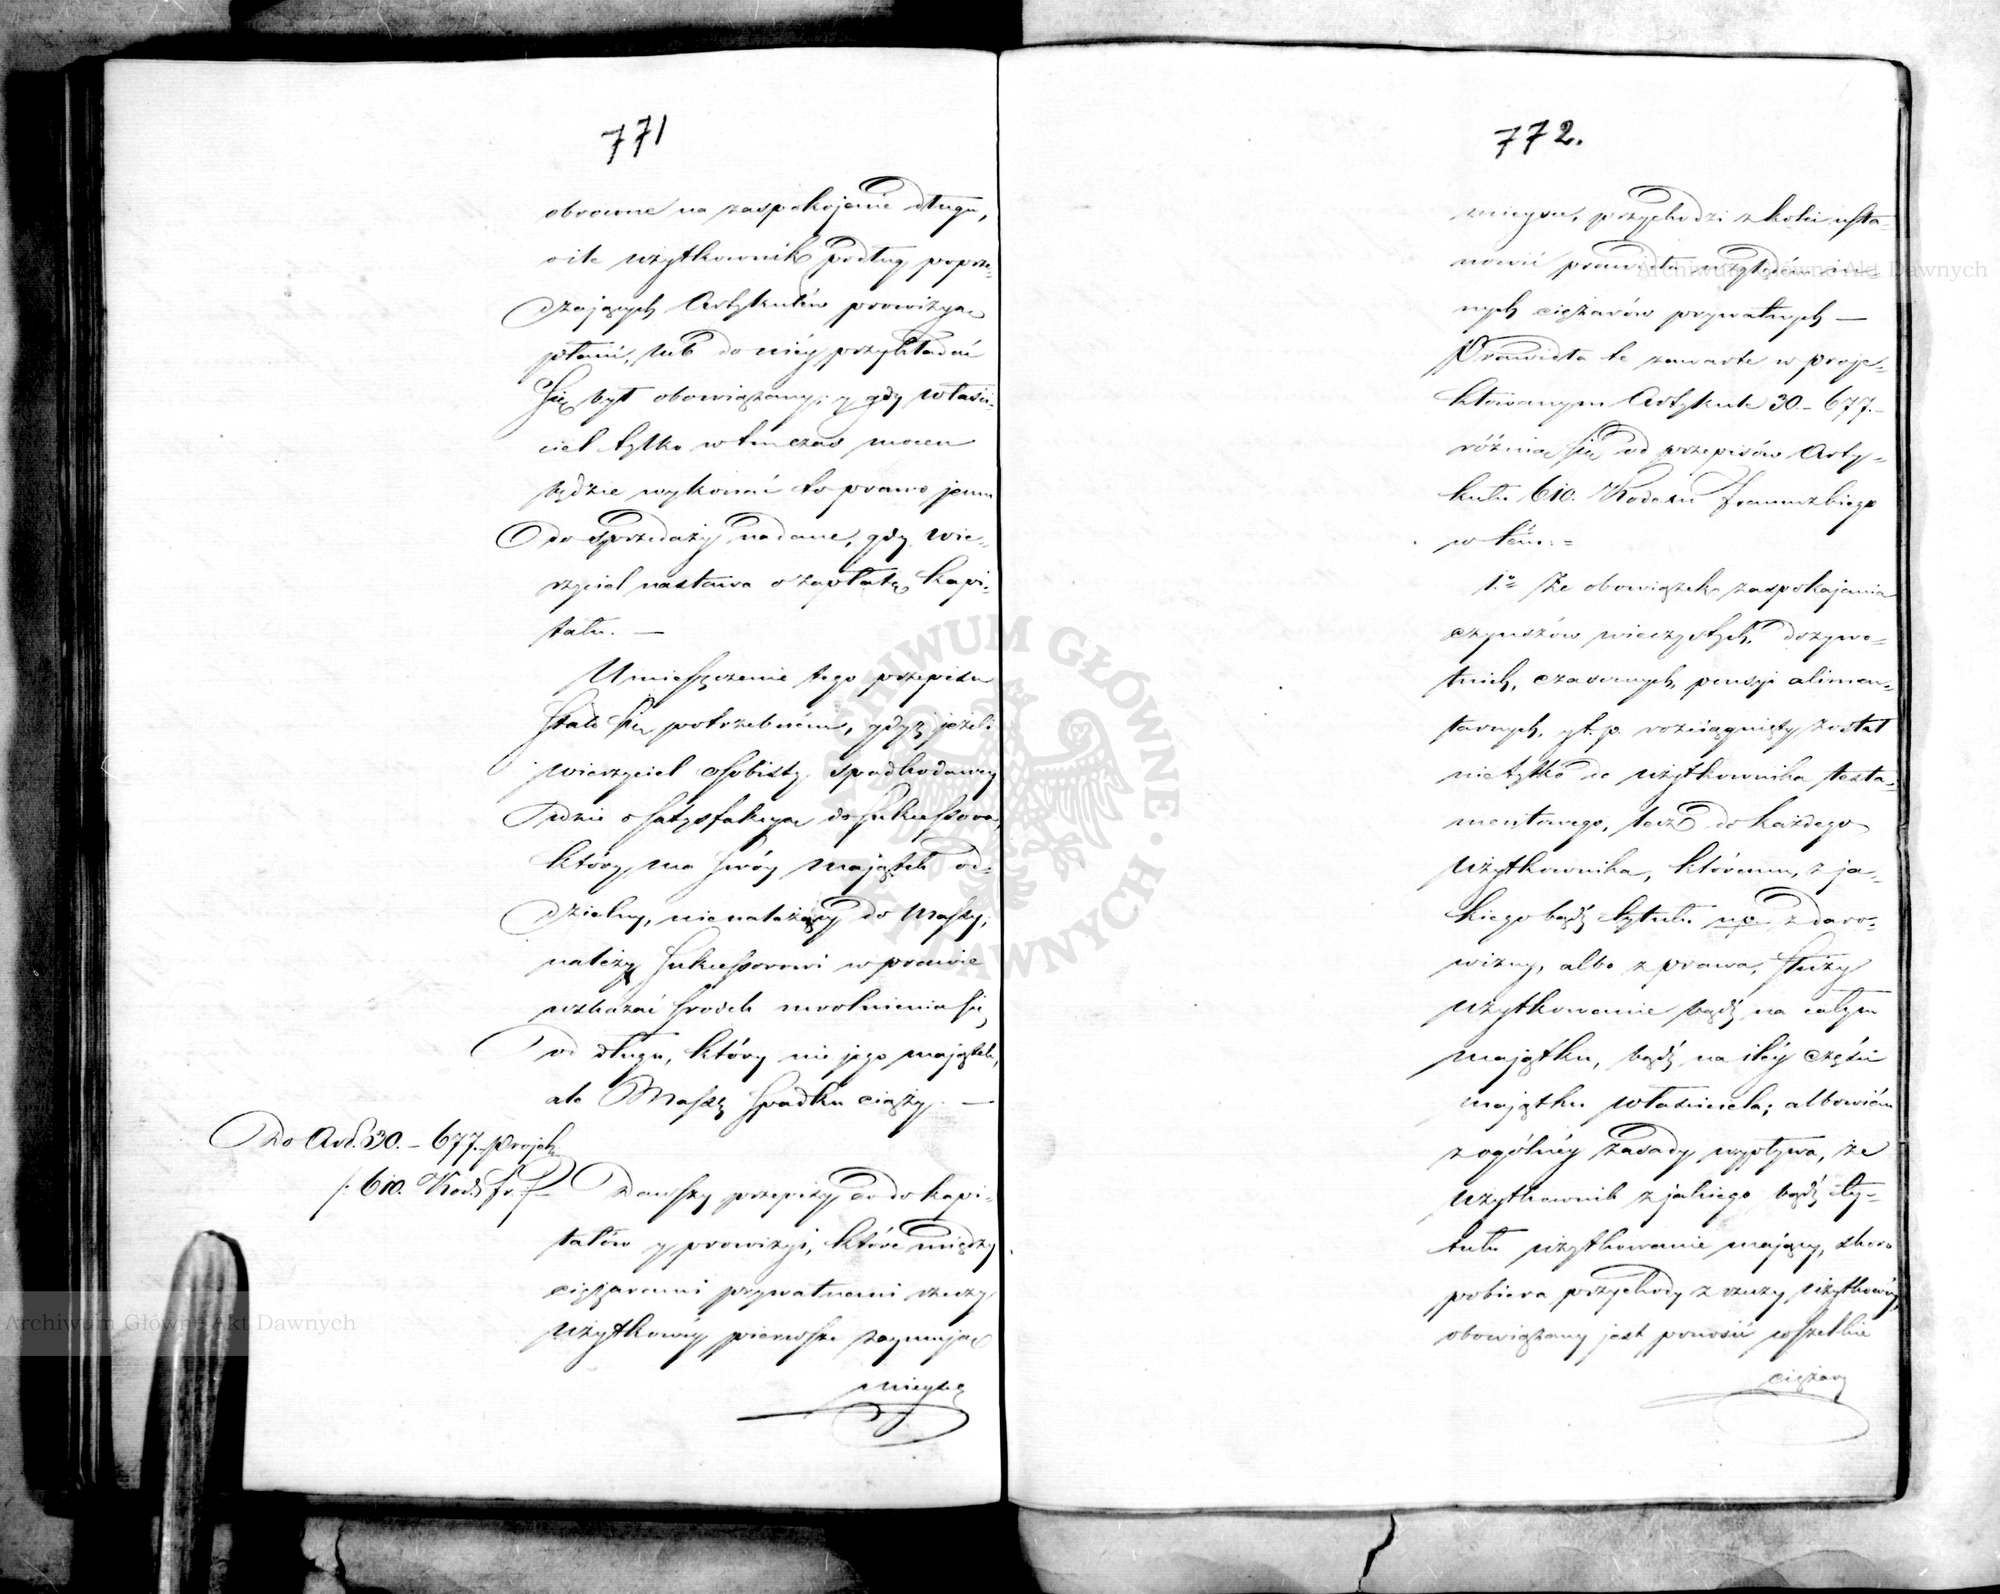 771
obrócone na zaspokojenie długu,
o ile użytkownik podług poprze-
dzających Artykułów prowizyą
płacić, lub do niéy przykładać
się był obowiązany; y gdy właści-
ciel tylko wtenczas mocen
będzie wykonać to prawo jemu
do sprzedaży nadane, gdy wie-
rzyciel nastawa o zapłatę kapi-
tału. —
Umieszczenie tego przepisu
stało się potrzebném, gdyż jeżeli
wierzyciel osobisty spadkodawcy
idzie o satysfakcyą do sukcessora,
który ma swóy majątek od-
dzielny, nienależący do Massy,
należy sukcessorowi w prawie
wskazać środek uwolnienia się
od długu, który nie jego majątek,
ale Massę spadku ciąży. —
Do Art. 30. – 677. Projek.
/: 610. Kod. fr. :/
Dawszy przepisy co do kapi-
tałów y prowizyi, które między
ciężarami prywatnemi rzeczy
użytkowéy pierwsze zaymują
mieysce
772.
mieysce, przychodzi z kolei usta-
nowić prawidła względem in-
nych ciężarów prywatnych —
Prawidła te zawarte w proje-
ktowanym Artykule 30. – 677. –
różnią się od przepisów Arty-
kułu 610. Kodexu francuzkiego
w tém: =
1.° Że obowiązek zaspokajania
czynszów wieczystych, dożywo-
tnich, czasowych, pensyi alimen-
tarnych, y t. p. rozciągnięty został
nietylko do użytkownika testa-
mentowego, lecz do każdego
użytkownika, któremu, z ja-
kiego bądź tytułu np. z daro-
wizny, albo z prawa, służy
użytkowanie bądź na całym
majątku, bądź na iléy części
majątku właściciela; albowiém
z ogólnéy zasady wypływa, że
użytkownik z jakiego bądź ty-
tułu użytkowanie mający, skoro
pobiera przychody z rzeczy użytkowéy,
obowiązany jest ponosić wszelkie
ciężary
Archiwum Główne Akt Dawnych
Archiwum Główne Akt Dawnych
ARCHIWUM GŁÓWNE AKT DAWNYCH